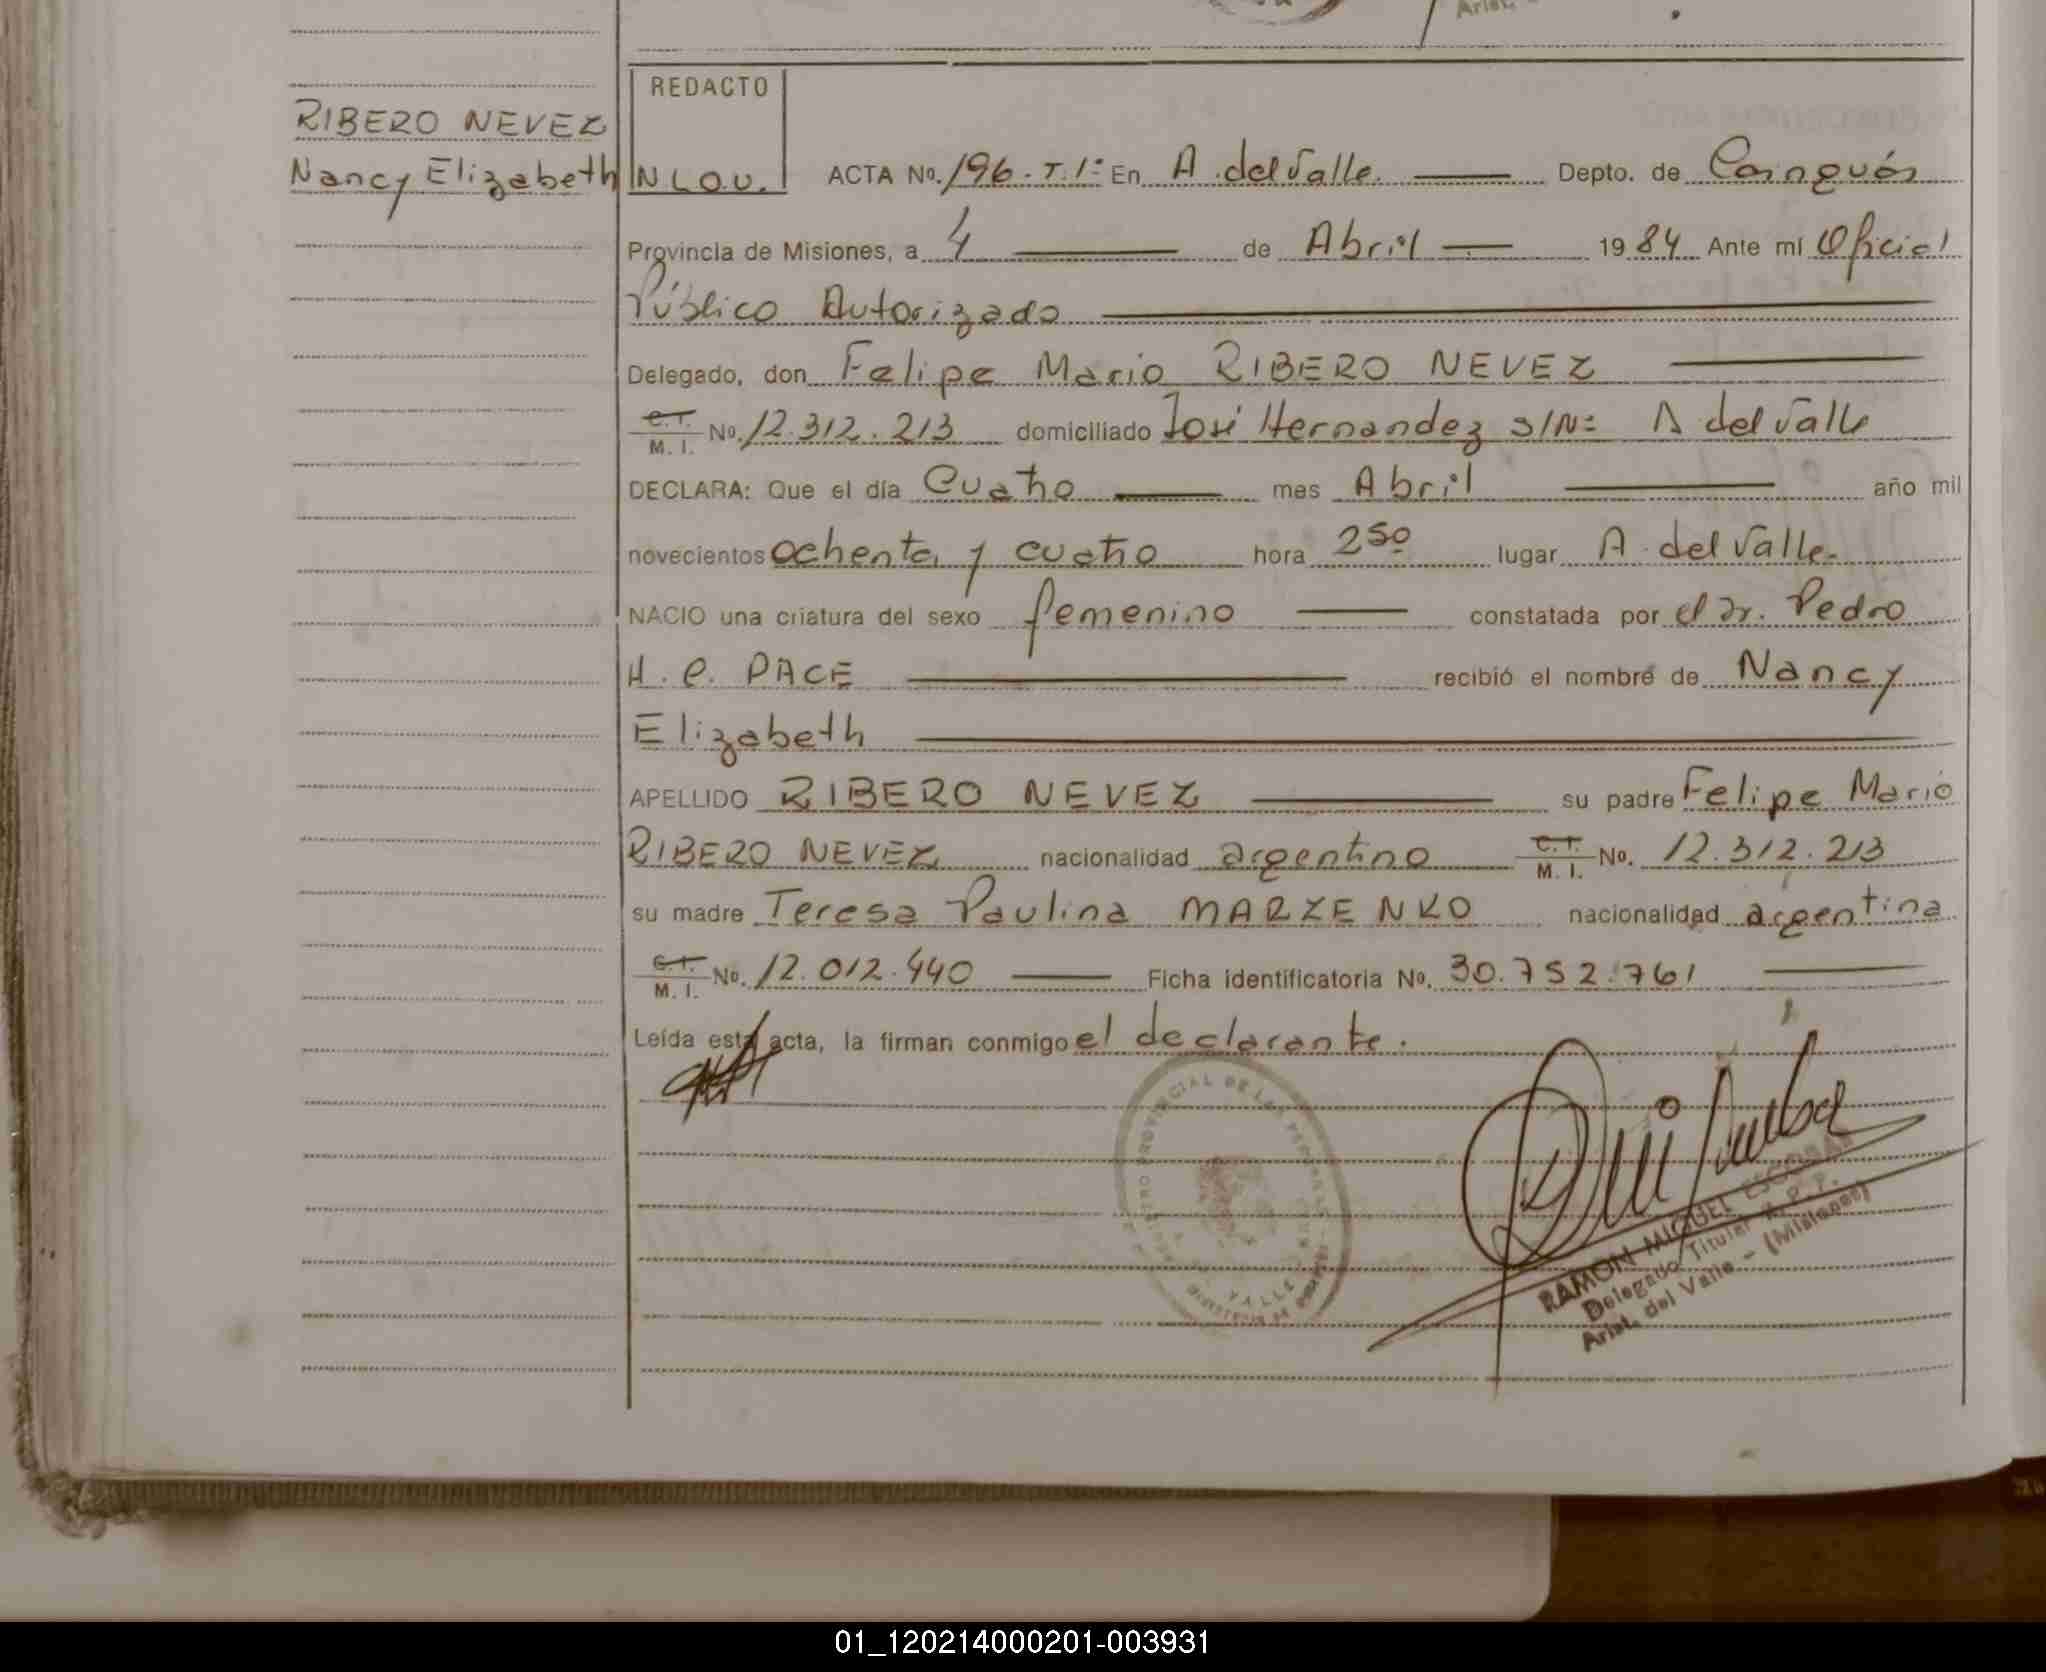 Arist.
REDACTO
RIBERO NEVEZ
Nancy Elizabeth
N L O U. ACTA No. 196. T. 1: En A. del Valle. Depto. de Cainguás
Provincia de Misiones, a 4 de Abril 1984 Ante mí Oficial
Público Autorizado
Delegado, don Felipe Mario RIBERO NEVEZ
C.I.
M. I. No. 12.312.213 domiciliado José Hernandez S/Nº A del Valle
DECLARA: Que el día Cuatro mes Abril año mil
novecientos ochenta y cuatro hora 2⁵⁰ lugar A. del Valle.
NACIO una criatura del sexo femenino constatada por el Dr. Pedro
H. C. PACE recibió el nombre de Nancy
Elizabeth
APELLIDO RIBERO NEVEZ su padre Felipe Mario
RIBERO NEVEZ nacionalidad argentino C.I. M. I. No. 12.312.213
su madre Teresa Paulina MARZENKO nacionalidad argentina
C.I.
M. I. No. 12.012.440 Ficha identificatoria No. 30.752.761
Leída esta acta, la firman conmigo el declarante.
PROVINCIAL DE LAS PERSONAS
RAMON MIGUEL ESCOBAR
Delegado Titular R. P. P.
Arist. del Valle - (Misiones)
01_120214000201-003931